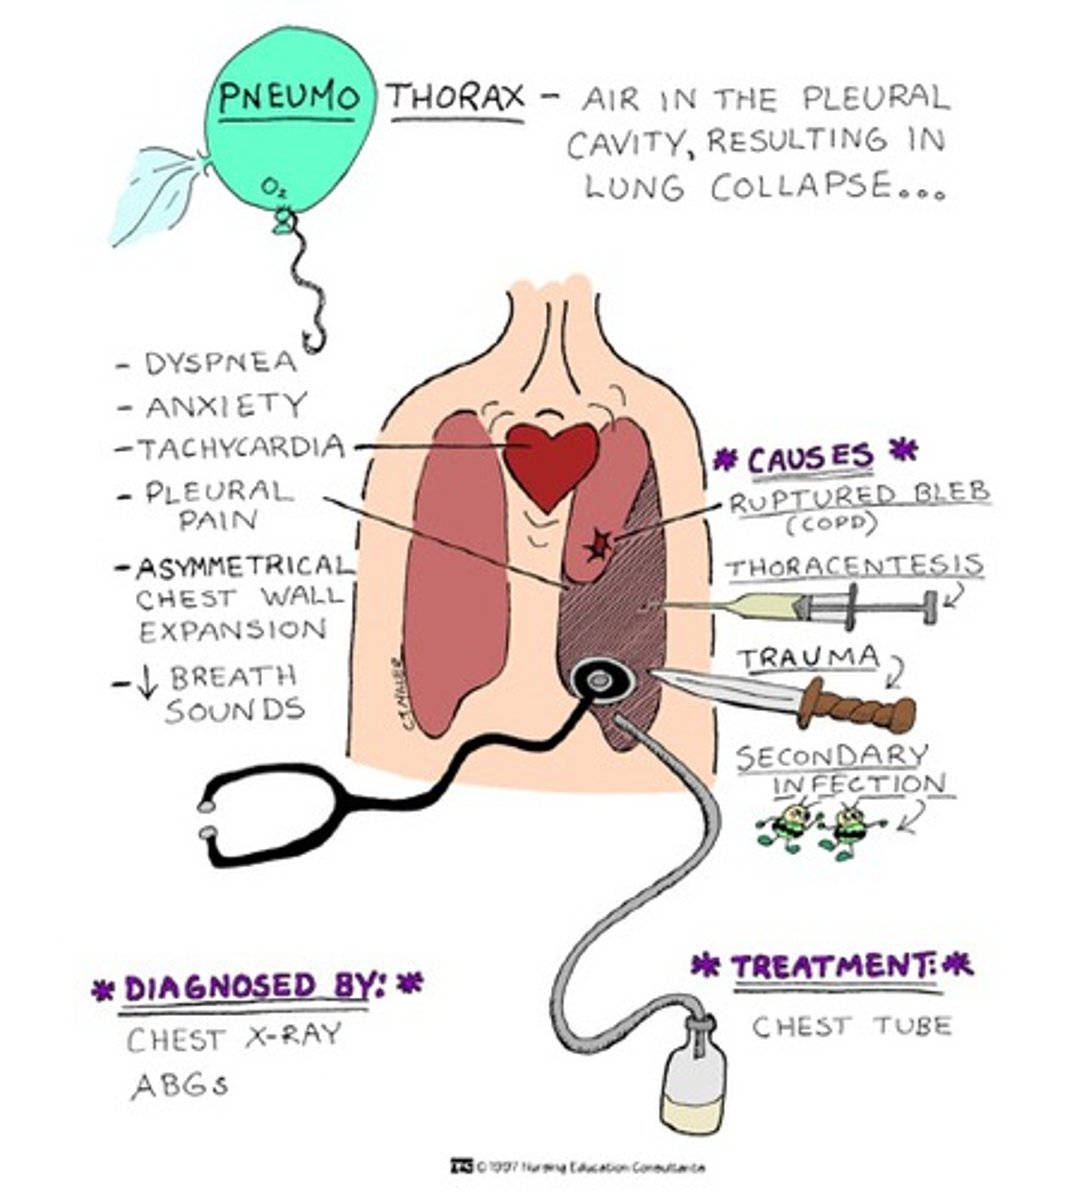 PNEUMO THORAX - AIR IN THE PLEURAL
CAVITY, RESULTING IN
LUNG COLLAPSE...
O₂
- DYSPNEA
- ANXIETY
- TACHYCARDIA
- PLEURAL
PAIN
- ASYMMETRICAL
CHEST WALL
EXPANSION
- ↓ BREATH
SOUNDS
* CAUSES *
RUPTURED BLEB
(COPD)
THORACENTESIS
TRAUMA
SECONDARY
INFECTION
* DIAGNOSED BY: *
CHEST X-RAY
ABGs
* TREATMENT: *
CHEST TUBE
© 1997 Nursing Education Consultants